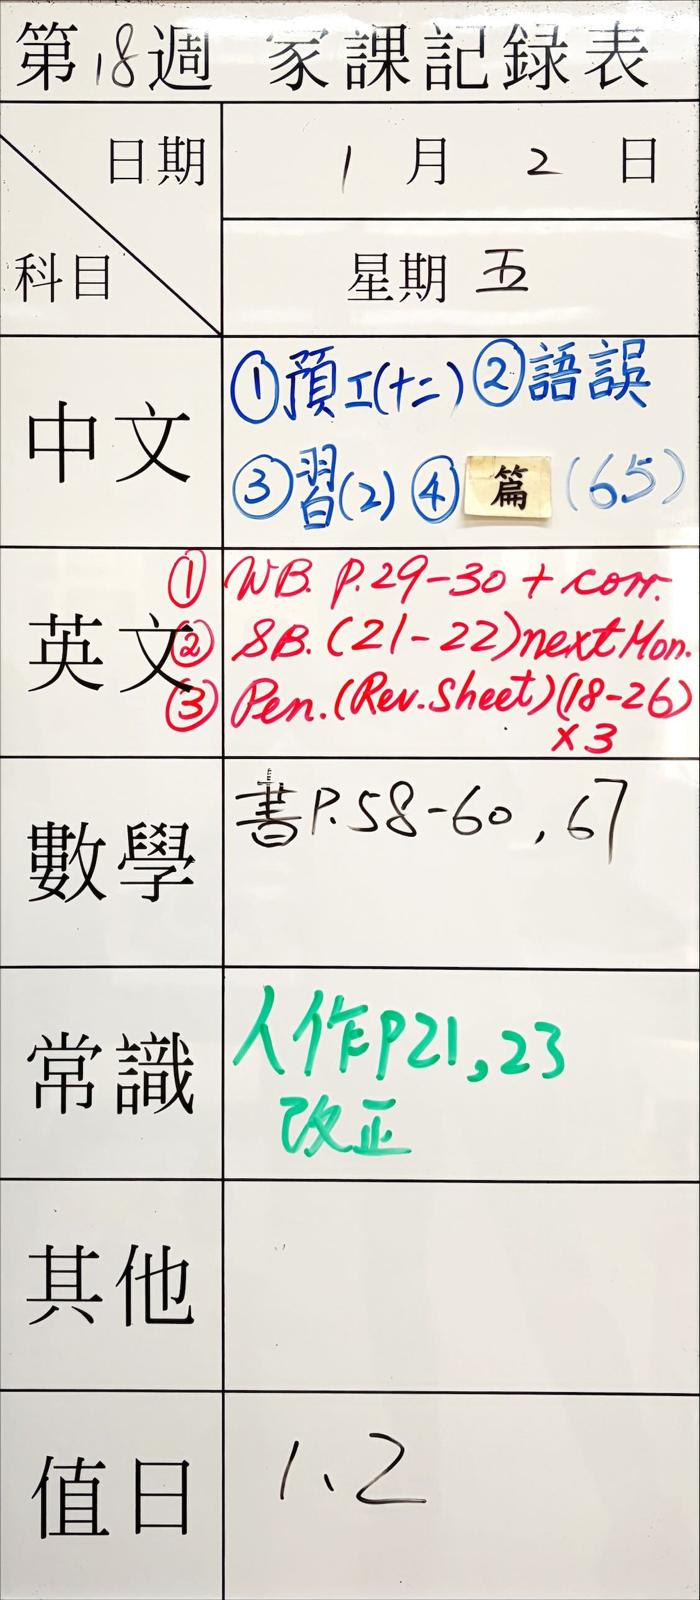 第18週 家課記録表
日期 1月2日
科目 星期 五
中文 ①預工(十二) ②語誤
③習(2) ④篇(65)
英文 ① WB. P.29-30 + corr.
② SB. (21-22) next Mon.
③ Pen. (Rev. Sheet) (18-26)
x3
數學 書P.58-60, 67
常識 人作P21, 23
改正
其他
值日 1、2